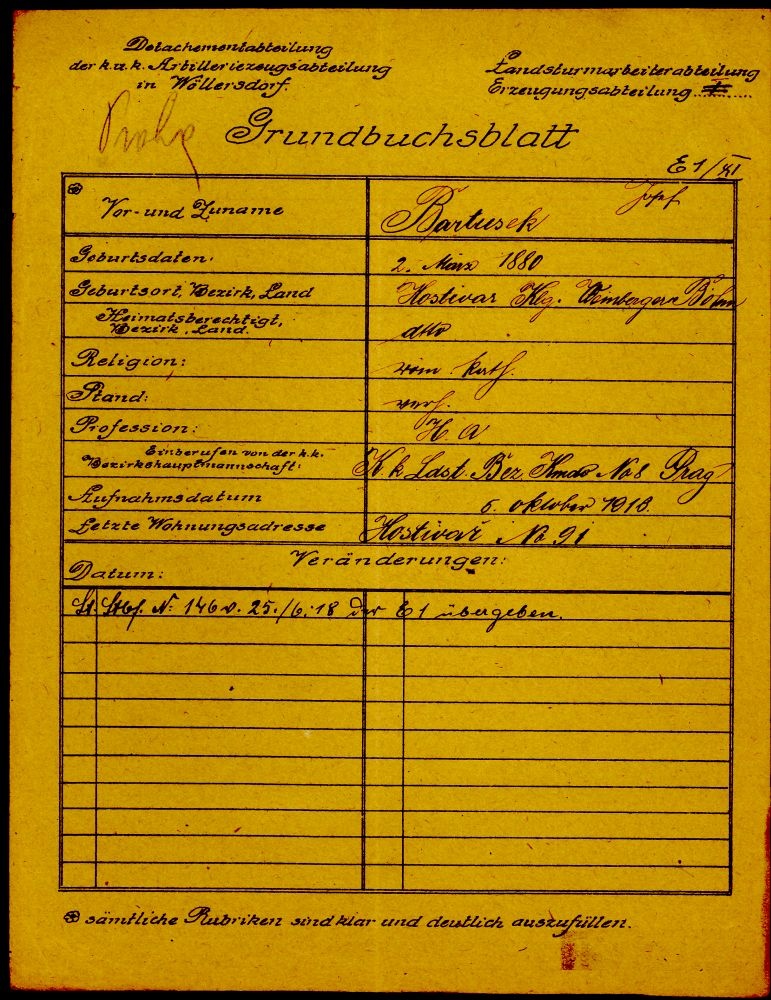 Detachementabteilung
der k.u.k. Artilleriezeugsabteilung
in Wöllersdorf.
Landsturmarbeiterabteilung
Erzeugungsabteilung
Grundbuchsblatt
E 1/XI
Vor- und Zuname
Bartusek Josef
Geburtsdaten:
2. März 1880
Geburtsort, Bezirk, Land
Hostivar Kg. Weinbergen Böhm
Heimatsberechtigt,
Bezirk, Land.
dtto
Religion:
röm. kath.
Stand:
verh.
Profession:
H. A
Einberufen von der k.k.
Bezirkshauptmannschaft:
K. k Ldst. Bez Kmdo No 8 Prag
Aufnahmsdatum
6. oktober 1916.
Letzte Wohnungsadresse
Hostivař No 91
Veränderungen:
Datum:
Lt. Stbf. N: 146 v. 25./6.18 der E 1 übergeben.
⊕ sämtliche Rubriken sind klar und deutlich auszufüllen.